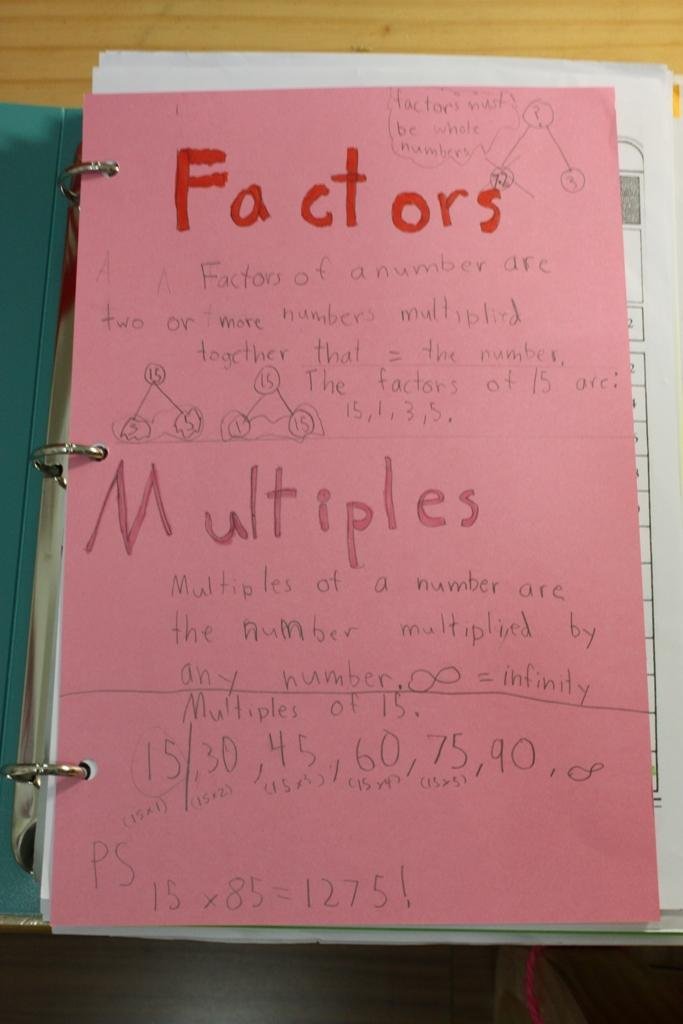 factors must
be whole
numbers
?
7.2
3
Factors
Factors of a number are
two or more numbers multiplied
together that = the number.
15
15
The factors of 15 are:
3
5
1
15
15, 1, 3, 5.
Multiples
Multiples of a number are
the number multiplied by
any number. ∞ = infinity
Multiples of 15.
15, 30, 45, 60, 75, 90, ∞
(15x1) (15x2) (15x3) (15x4) (15x5)
PS
15 x 85 = 1275!